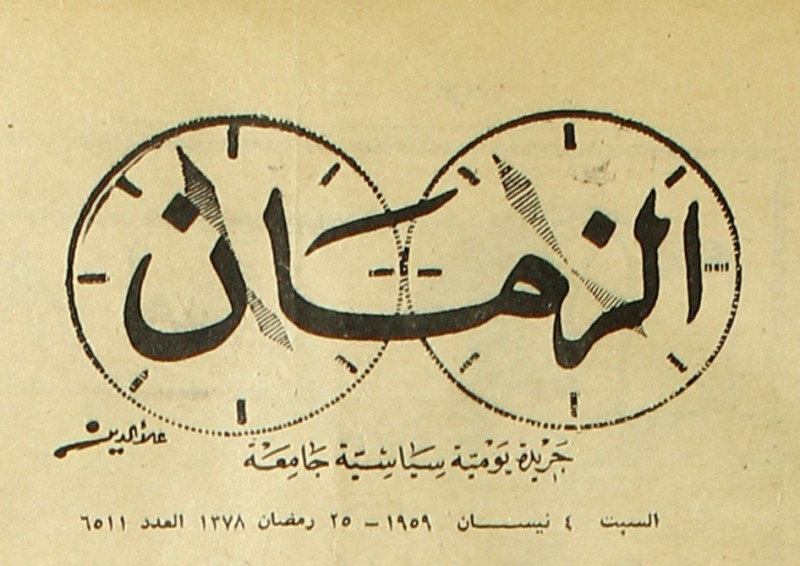 الزمان
علاء الدين
جَريدة يَوْميّة سيَاسيّة جَامِعَة
السبت ٤ نيســـان ١٩٥٩ – ٢٥ رمضان ١٣٧٨ العدد ٦٥١١